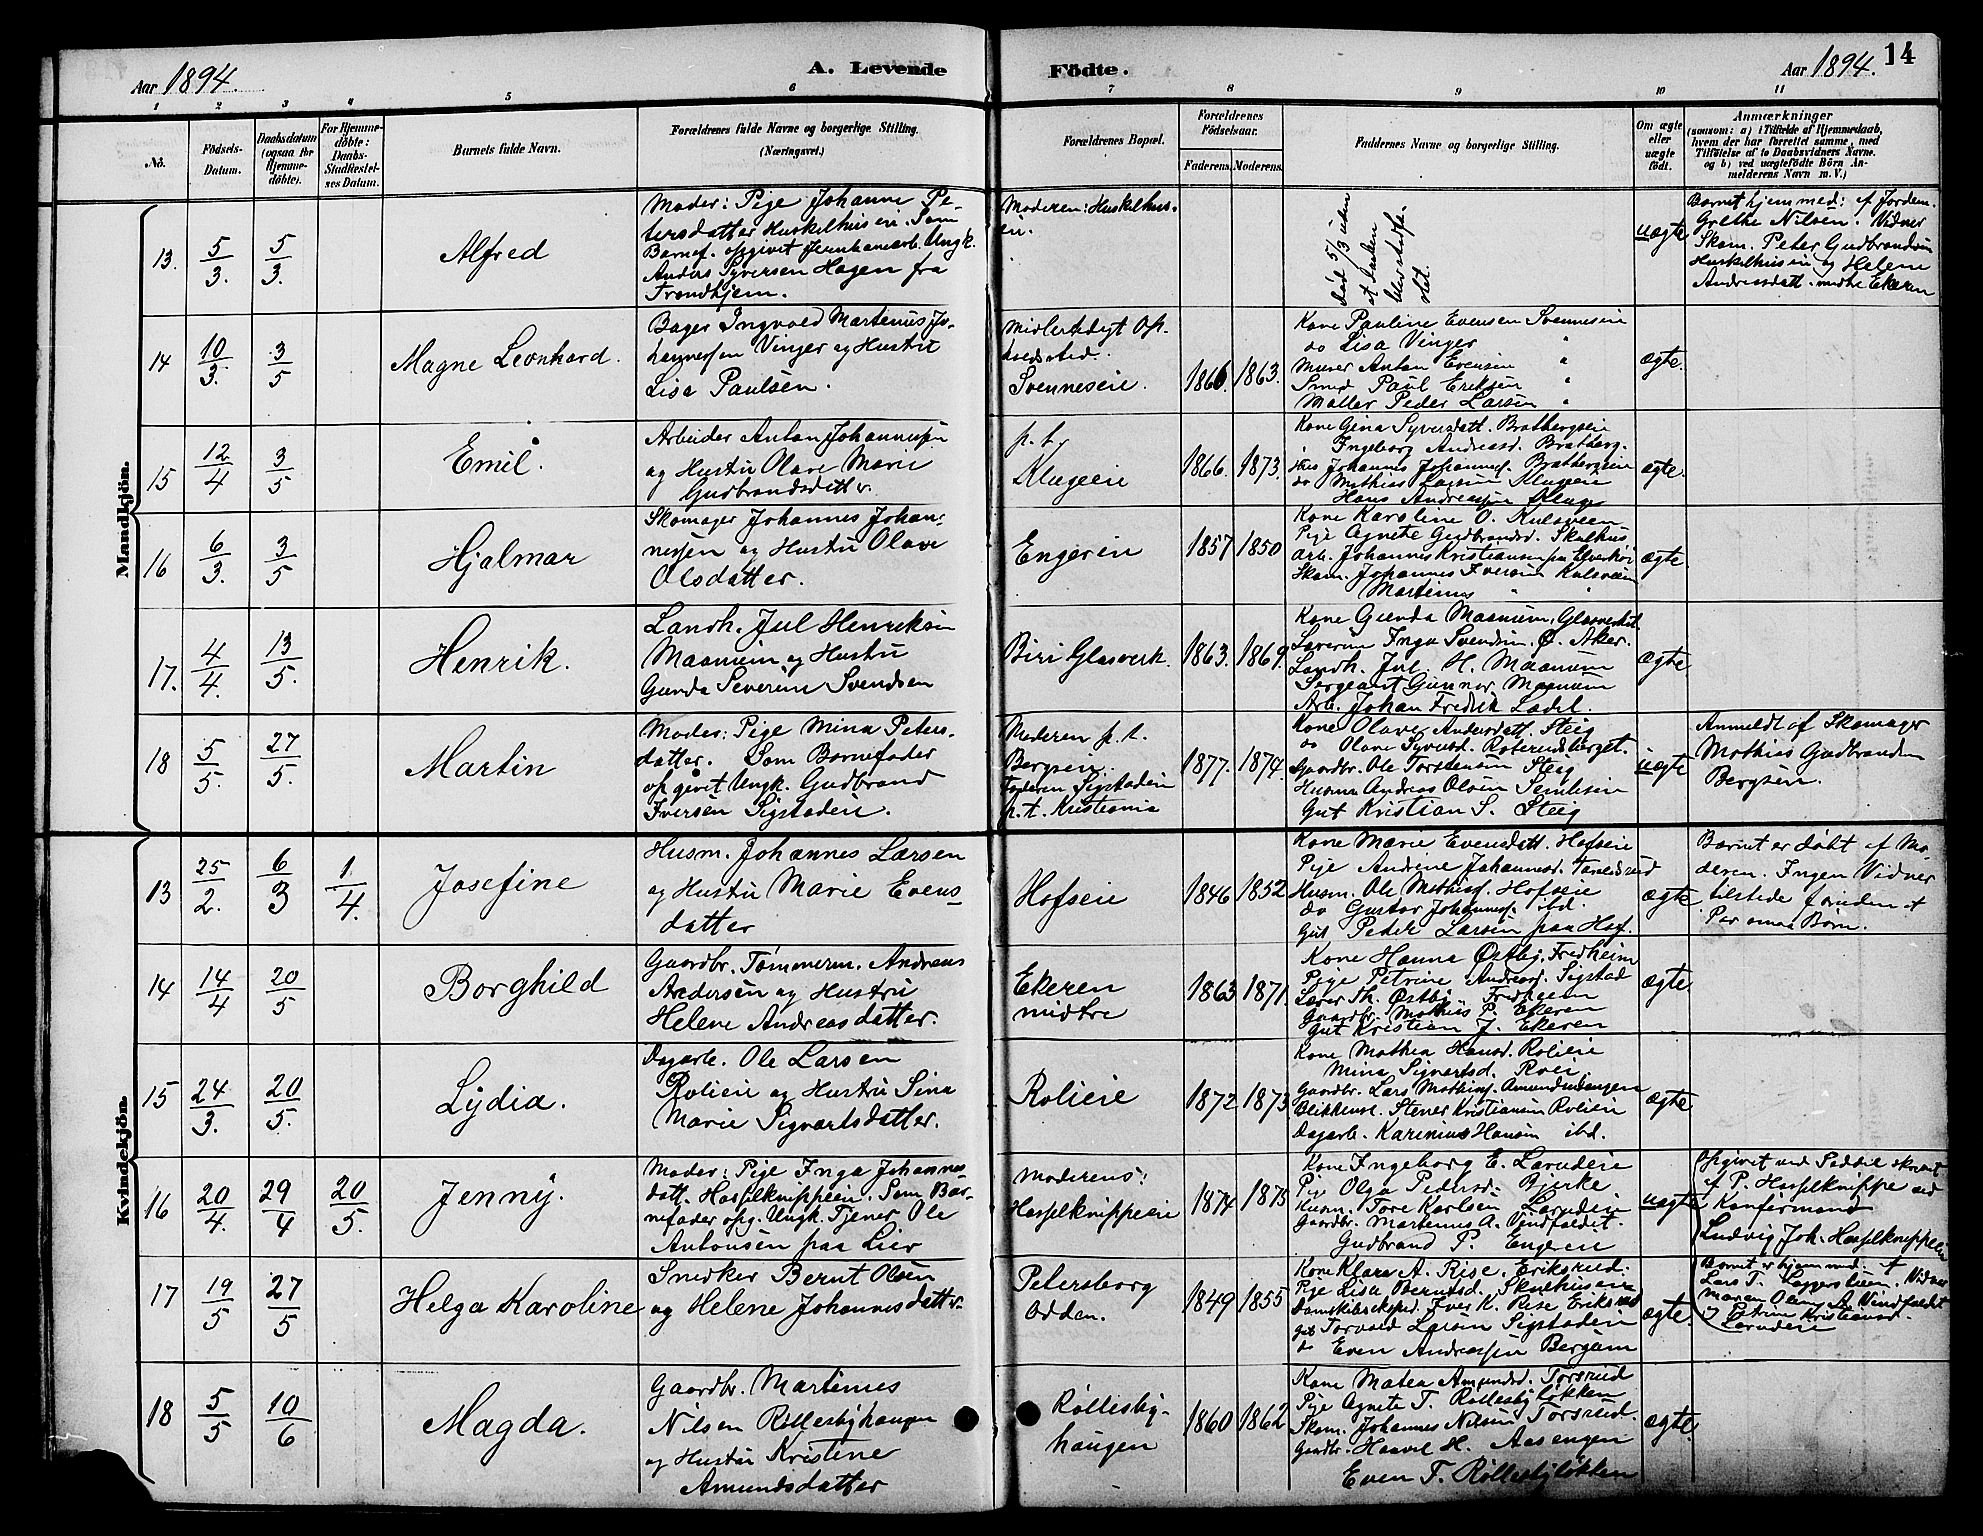 Aar 1894.
A. Levende
Födte.
Aar 1894.
14
1 2 3 4 5 6 7 8 9 10 11
No.
Födsels-
Datum.
Daabsdatum
(ogsaa for
Hjemme-
döbte).
For Hjemme-
döbte:
Daabs-
Stadfæstel-
ses Datum.
Barnets fulde Navn.
Forældrenes fulde Navne og borgerlige Stilling.
(Næringsvei.)
Forældrenes Bopæl.
Forældrenes
Födselsaar.
Faderens.
Moderens.
Faddernes Navne og borgerlige Stilling.
Om ægte
eller
uægte
födt.
Anmærkninger
(saasom: a) i Tilfælde af Hjemmedaab,
hvem der har forrettet samme, med
Tilföielse af to Daabsvidners Navne,
og b) ved uægtefödte Börn An-
melderens Navn m. V.)
Mandkjön.
13. 5/3. 5/3.
Alfred
Moder: Pige Johanne Pe-
tersdatter Huskelhuseie. Som
Barnef. opgivet Jernbanearb. Ungk.
Anders Syversen Hagen fra
Trondhjem.
Moderen: Huskelhus-
eie.
død 5/3 uden
at Daaben
blev stadfæ-
stet.
uægte
Barnet hjemmed: af Jordem.
Grethe Nilsen. Vidner
Skom. Peter Gudbrandsen
Huskelhuseie og Helene
Andreasdatt. midtre Ekeren
14 10/3. 3/5
Magne Leonhard.
Bager Ingvald Martenius Jo-
hannessen Vinger og Hustru
Lisa Paulsen.
Midlertidigt Op-
holdssted.
Svenneseie.
1866. 1863.
Kone Pauline Evensen Svenneseie
do Lisa Vinger "
Murer Anton Evensen "
Smed Paul Eriksen "
Møller Peder Larsen "
ægte.
15 12/4 3/5
Emil.
Arbeider Anton Johannessen
og Hustru Olave Marie
Gudbrandsdatter.
p. t.
Klugeeie
1866. 1873.
Kone Gina Syversdatt. Bratbergseie
Ingeborg Andreasd. Bratberg.
Hus Johannes Johannesf. Bratbergseie
do Mathias Larsen Klugeeie
Hans Andreassen Kluge
ægte.
16 6/3 3/5
Hjalmar
Skomager Johannes Johan-
nessen og Hustru Olave
Olsdatter.
Engereie
1857 1850
Kone Karoline O. Kulsveen
Pige Agnete Gudbrandsd. Skalhus
Arb. Johannes Kristiansen paa Elverhöi
Skom. Johannes Iversen Kulsveen
Martinus " "
ægte.
17. 4/4. 13/5.
Henrik.
Landh. Jul Henriksen
Maanum og Hustru
Gunda Severine Svendsen
Biri Glasverk.
1863. 1869.
Kone Gunda Maanum. Glasverket
Lærerin Inga Svendsen. Ø. Aker.
Landh. Jul. H. Maanum
Sergeant Gunnar Maanum
Arb. Johan Fredrik Ladel.
ægte
18 5/5. 27/5.
Martin
Moder: Pige Mina Peters-
datter. Som Barnefader
opgivet Ungk. Gudbrand
Iversen Sigstadeie.
Moderen p. t.
Bergseie.
Faderen Sigstadeie
p. t. Kristiania
1877. 1874
Kone Olave Andersdatt. Steig
do Olave Syversd. Roterudsberget.
Gaardbr. Ole Torstensen Steig
Husm Andreas Olsen Sembseie
Gut Kristian S. Steig
uægte
Anmeldt af Skomager
Mathias Gudbrandsen
Bergseie.
Kvindekjön.
13 25/2. 6/3 1/4.
Josefine
Husm. Johannes Larsen
og Hustru Marie Evens-
datter
Hofseie
1846 1852
Kone Marie Evensdatt. Hofseie
Pige Andrine Johannesd. Taraldsrud
Husm. Ole Mathiasf. Hofseie
do Gustav Johannesf. ibd.
Gut Peter Larsen paa Hof.
ægte
Barnet er døbt af Mo-
deren. Ingen Vidner
tilstede foruden et
Par smaa Børn.
14 14/4 20/5
Borghild
Gaardbr. Tømmerm. Andreas
Andersen og Hustru
Helene Andreasdatter.
Ekeren
midtre
1863 1871
Kone Hanna Østby, Fredheim
Pige Petrine Andersd. Sigstad
Lærer Th. Østby. Fredheim
Gaardbr. Mathias P. Ekeren
Gut Kristian J. Ekeren
ægte.
15 24/3. 20/5.
Lydia.
Dagarb. Ole Larsen
Rolieie og Hustru Sina
Marie Sigvartsdatter.
Rolieie
1872 1873
Kone Mathea Hansd. Rolieie
Mina Sigvartsd. Roei
Gaardbr. Lars Mathiasf. Amundsengen
Blikkensl. Stener Kristiansen Rolieie
Dagarb. Karinius Hansen ibd.
ægte
16 20/4. 29/4 20/5.
Jenny.
Moder: Pige Inga Johannes
datt. Hasselknippeeie. Som Bar-
nefader opg. Ungk. Tjener Ole
Antonsen paa Lier
Moderens:
Hasselknippeeie
1874 1875
Kone Ingeborg E. Larudeie
Pige Olga Pedersd. Bjerke
Husm. Tore Karlsen Larudeie
Gaardbr. Martenus A. Vindfaldet.
Gudbrand P. Engereie
uægte
Opgivet ved Seddel skrevet
af P. Hasselknippe ved
Konfirmand
Ludvig Joh. Hasselknippeeie
17 19/5 27/5
Helga Karoline
Snedker Bernt Olsen
og Helene Johannesdatter
Petersborg
Odden.
1849 1855
Kone Klara A. Rise. Eriksrud.
Pige Lisa Berntsd. Skulhuseie
Damskibseksped. Iver K. Rise Eriksrud
Gut Torvald Larsen Sigstadeie
do Even Andreassen Bergseie
ægte.
Barnet er hjemmed: af
Lars T. Vidner
Maren A. Vindfaldet
og Petrine Kristiansd.
Larudeie
18 5/5 10/6
Magda.
Gaardbr. Martinus
Nilsen Röllesbyhaugen
og Hustru Kristine
Amundsdatter
Røllesby-
haugen
1860 1862
Kone Matea Amundsd. Torsrud
Pige Agnete T. Röllesbyløkken
Skom. Johannes Nilsen Torsrud.
Gaardbr. Haavel H. Aasengen
Even T. Røllesbyløkken
ægte.